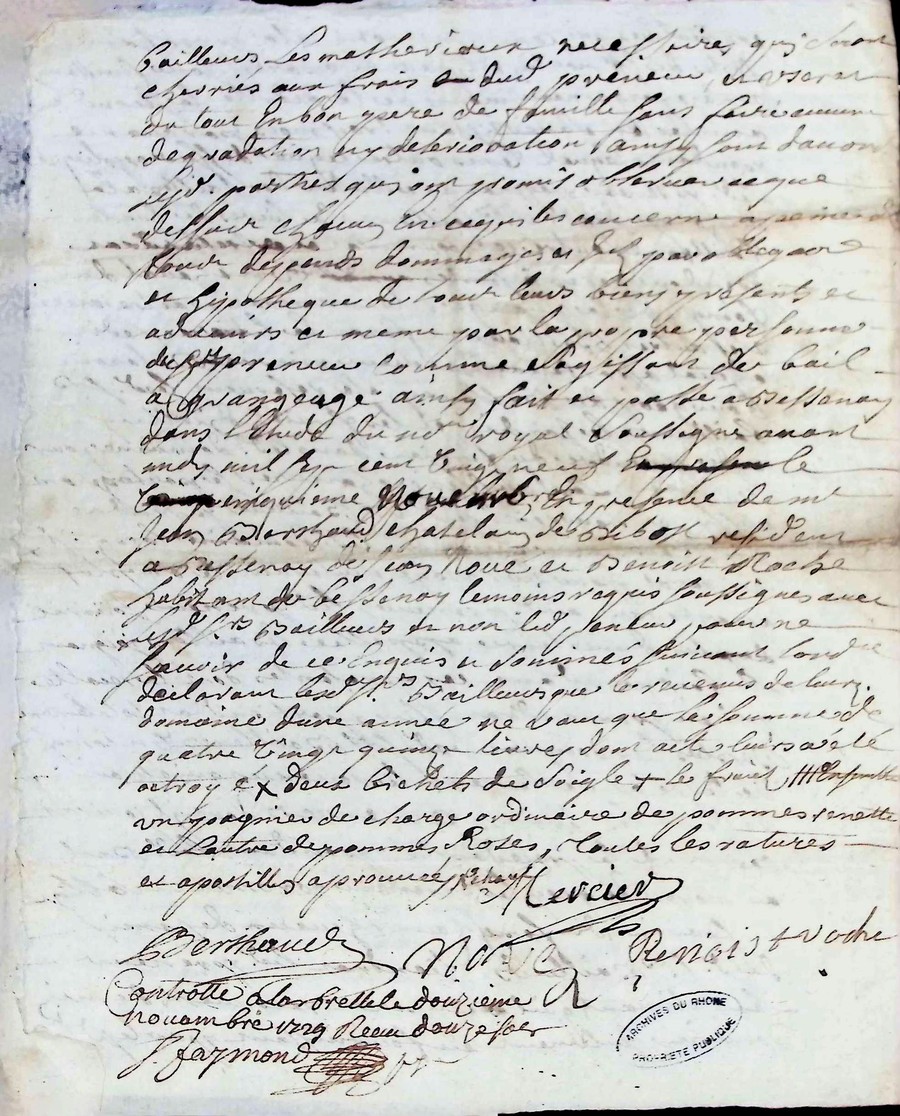 bailleurs les matheriaux necessaires qui seront
cherriés aux frais dud preneur, usera
du tout En bon pere de famille sans faire aucune
degradation ny deteriovation ainsy sont d'accord
lesd. parties qui ont promis observer ce que
dessus chacun En ce qui les concerne a peine de
tous despends dommages et par obligaon
et hypotheque de tous leurs biens presents et
advenirs et meme par la propre personne
dud preneur comme s'agissant de bail
a grangeage ainsy fait et passé a Bessenay
dans l'Etude du no.re royal soussigné avant
midy mil sept cent vingt neuf le
cinquieme Novembre En presence de mr
Jean Berthaud chatelain de Bibost resident
a Bessenay de Jean Nové et Benoist Roche
habitant de bessenay temoins requis soussignés avec
lesd. srs Bailleurs et non led preneur pour ne
scavoir de ce Enquis et sommés suivant l'ord.ce
déclarant lesd. srs Bailleurs que le revenus de leur
domaine d'une année ne vaut que la somme de
quatre vingt quinze livres dont acte leurs a été
octroyé x deux bichets de soigle + le fruict /// Ensemble
un pagnie de charge ordinaire de pommes renette
et l'autre de pommes Roses, toutes les ratures
et apostilles aprouvées Mercier
Berthaud Nové Benoist roche
Controllé a Larbresle le douzieme
nouambre 1729 Receu douze sols
faymond
ARCHIVES DU RHONE
PROPRIETE PUBLIQUE